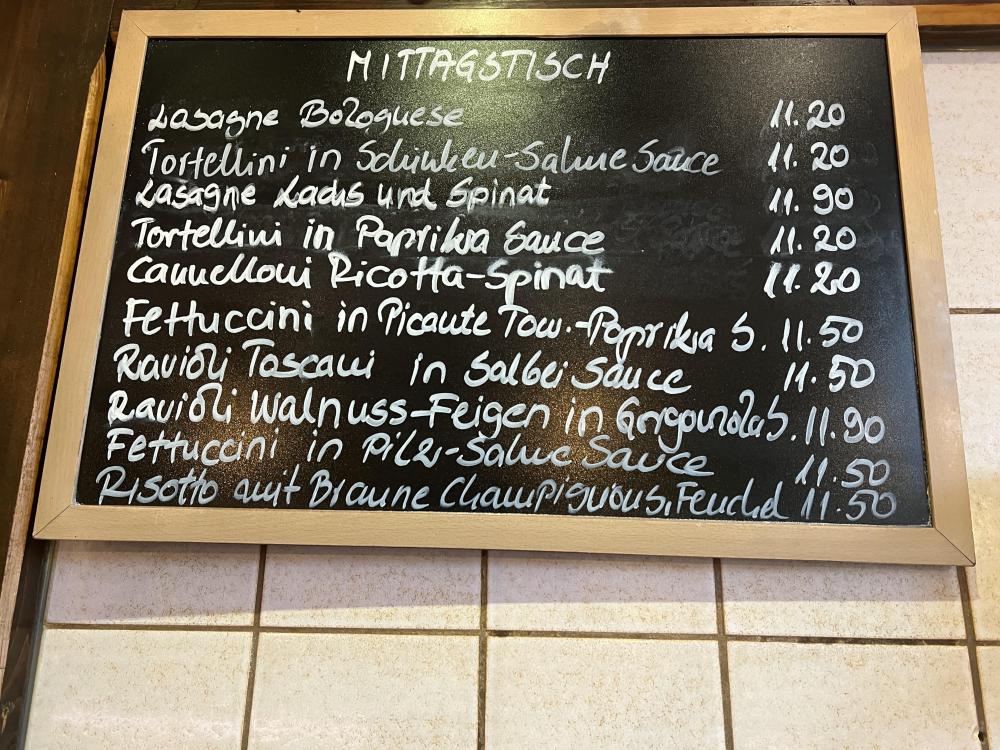 MITTAGSTISCH
Lasagne Bolognese 11.20
Tortellini in Schinken-Sahne Sauce 11.20
Lasagne Lachs und Spinat 11.90
Tortellini in Paprika Sauce 11.20
Cannelloni Ricotta-Spinat 11.20
Fettuccini in Picante Tom.-Paprika S. 11.50
Ravioli Toscani in Salbei Sauce 11.50
Ravioli Walnuss-Feigen in Gorgonzola S. 11.90
Fettuccini in Pilz-Sahne Sauce 11.50
Risotto mit Braune Champignons, Fenchel 11.50